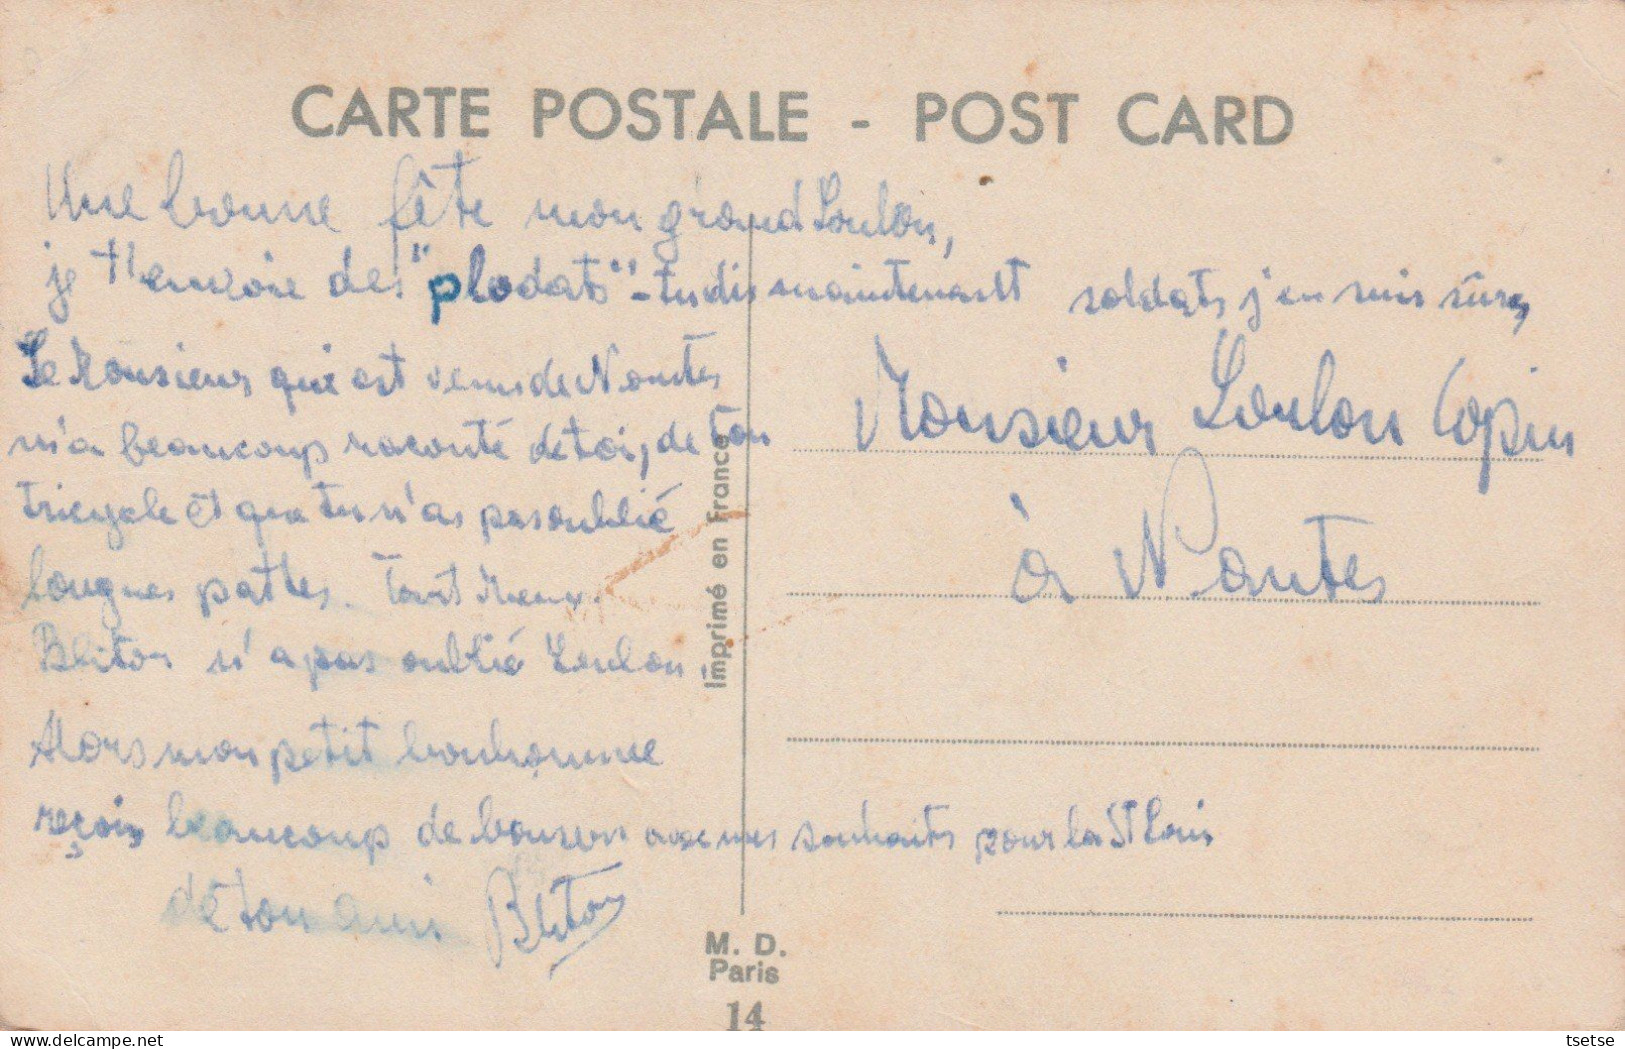 CARTE POSTALE - POST CARD
Une bonne fête mon grand Loulou,
je t'envoie des "plodats" - tu dis maintenant soldats j'en suis sûre,
Le Monsieur qui est venu de Nantes
m'a beaucoup raconté de toi, de ton
tricycle et que tu n'as pas oublié
longues pattes. Tant Mieux.
Bliton n'a pas oublié Loulou.
Alors mon petit bonhomme
reçois beaucoup de bonsons avec mes souhaits pour la St Louis
de ton ami Bliton
Monsieur Loulou Copin
à Nantes
Imprimé en France
M. D.
Paris
14
tsetse